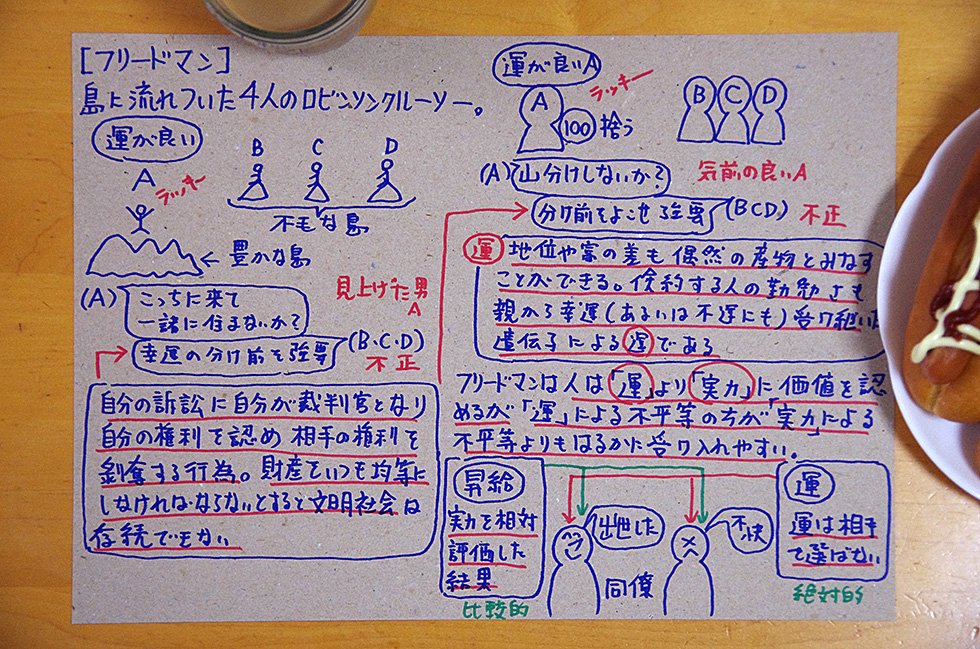 [フリードマン]
島に流れついた4人のロビンソンクルーソー。
運が良い
A
ラッキー
B C D
不毛な島
←豊かな島
(A)
こっちに来て
一緒に住まないか?
見上げた男
A
幸運の分け前を強要
(B、C、D)
不正
自分の訴訟に自分が裁判官となり
自分の権利を認め 相手の権利を
剝奪する行為。財産をいつも均等に
しなければならないとすると文明社会は
存続できない
運が良いA
ラッキー
A
100 拾う
B C D
(A) 山分けしないか?
気前の良いA
分け前をよこせ 強要
(BCD) 不正
運 地位や富の差も 偶然の産物とみなす
ことができる。倹約する人の勤勉さも
親から幸運(あるいは不運にも)受け継いだ
遺伝子による運である
フリードマンは人は「運」より「実力」に価値を認
めるが「運」による不平等の方が「実力」による
不平等よりもはるかに受け入れやすい。
昇給
実力を相対
評価した
結果
比較的
出世した
同僚
不快
運
運は相手
を選ばない
絶対的